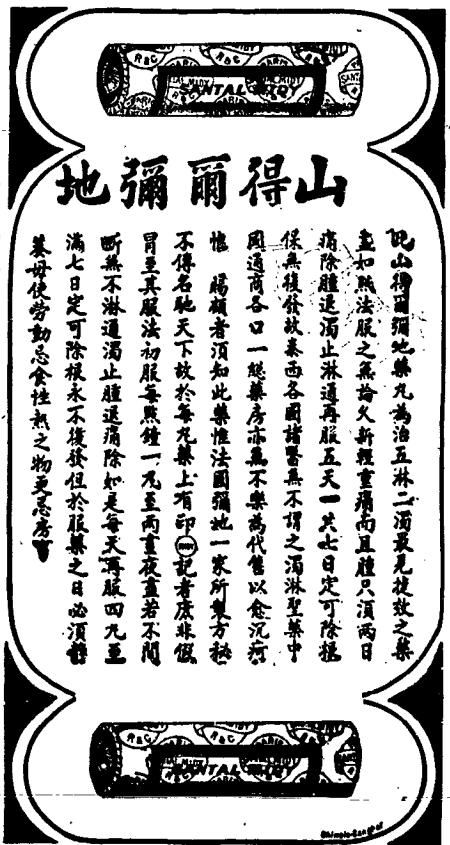 SANTAL MIDY
山得爾彌地
此山得爾彌地藥丸為治五淋二濁最見捷效之藥
盖如照法服之無論久新輕重痛而且腫只須兩日
痛除腫退濁止淋通再服五天一共七日定可除根
保無復發故泰西各國諸醫無不謂之濁淋聖藥中
國通商各口一總藥房亦無不樂為代售以愈沉疴
惟 賜顧者須知此藥惟法國彌地一家所製方秘
不傳名馳天下故於每丸藥上有印 MIDY 記者庶非假
冒至其服法初服每點鐘一丸至兩晝夜盡若不間
斷無不淋通濁止腫退痛除如是每天再服四丸至
滿七日定可除根永不復發但於服藥之日必須靜
養毋使勞動忌食性熱之物更忌房
SANTAL MIDY